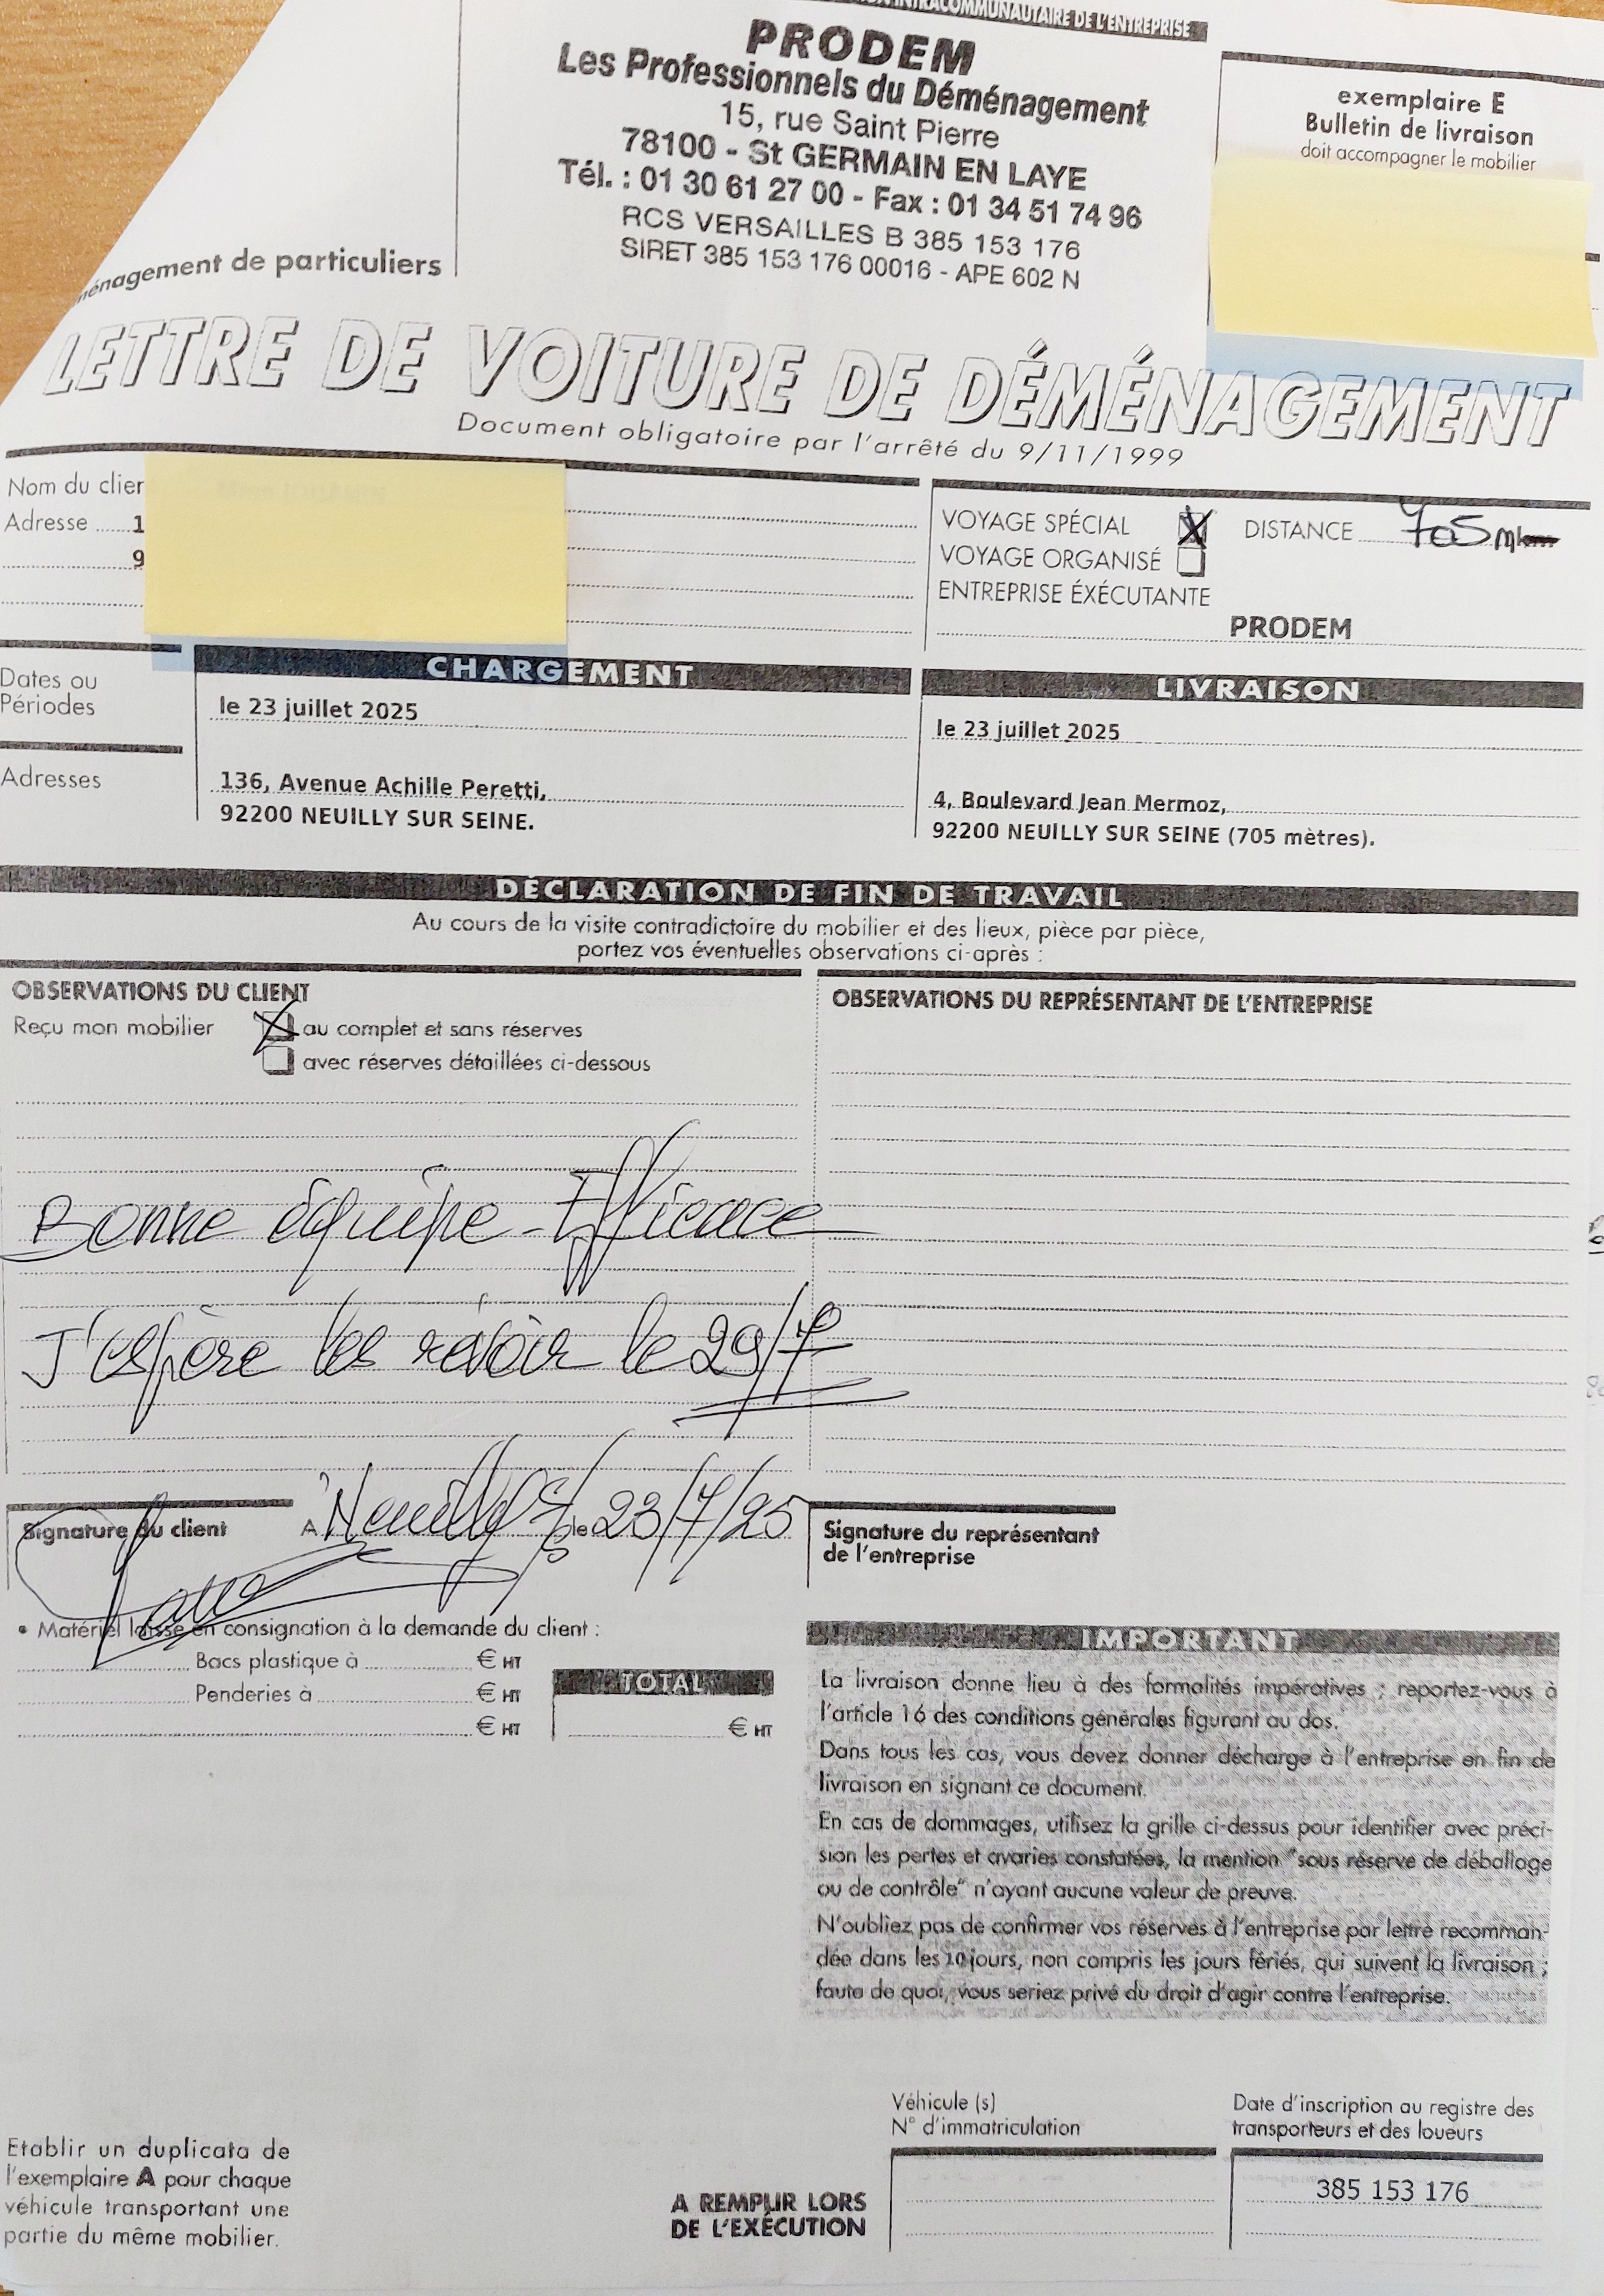 INTRACOMMUNAUTAIRE DE L'ENTREPRISE
PRODEM
Les Professionnels du Déménagement
15, rue Saint Pierre
78100 - St GERMAIN EN LAYE
Tél. : 01 30 61 27 00 - Fax : 01 34 51 74 96
RCS VERSAILLES B 385 153 176
SIRET 385 153 176 00016 - APE 602 N
exemplaire E
Bulletin de livraison
doit accompagner le mobilier
ménagement de particuliers
LETTRE DE VOITURE DE DÉMÉNAGEMENT
Document obligatoire par l'arrêté du 9/11/1999
Nom du clien
Adresse 1
9
VOYAGE SPÉCIAL X DISTANCE 705 m
VOYAGE ORGANISÉ
ENTREPRISE ÉXÉCUTANTE
PRODEM
Dates ou
Périodes
CHARGEMENT
le 23 juillet 2025
LIVRAISON
le 23 juillet 2025
Adresses
136, Avenue Achille Peretti,
92200 NEUILLY SUR SEINE.
4, Boulevard Jean Mermoz,
92200 NEUILLY SUR SEINE (705 mètres).
DÉCLARATION DE FIN DE TRAVAIL
Au cours de la visite contradictoire du mobilier et des lieux, pièce par pièce,
portez vos éventuelles observations ci-après :
OBSERVATIONS DU CLIENT
Reçu mon mobilier X au complet et sans réserves
avec réserves détaillées ci-dessous
OBSERVATIONS DU REPRÉSENTANT DE L'ENTREPRISE
Bonne équipe - Efficace
J'espère les revoir le 29/7
Signature du client A Neuilly s/S le 23/7/25
Signature du représentant
de l'entreprise
• Matériel laissé en consignation à la demande du client :
Bacs plastique à € HT
Penderies à € HT
€ HT
TOTAL
€ HT
IMPORTANT
La livraison donne lieu à des formalités impératives ; reportez-vous à
l'article 16 des conditions générales figurant au dos.
Dans tous les cas, vous devez donner décharge à l'entreprise en fin de
livraison en signant ce document.
En cas de dommages, utilisez la grille ci-dessus pour identifier avec préci-
sion les pertes et avaries constatées, la mention "sous réserve de déballage
ou de contrôle" n'ayant aucune valeur de preuve.
N'oubliez pas de confirmer vos réserves à l'entreprise par lettre recomman-
dée dans les 10 jours, non compris les jours fériés, qui suivent la livraison ;
faute de quoi, vous seriez privé du droit d'agir contre l'entreprise.
Etablir un duplicata de
l'exemplaire A pour chaque
véhicule transportant une
partie du même mobilier.
A REMPLIR LORS
DE L'EXÉCUTION
Véhicule (s)
N° d'immatriculation
Date d'inscription au registre des
transporteurs et des loueurs
385 153 176